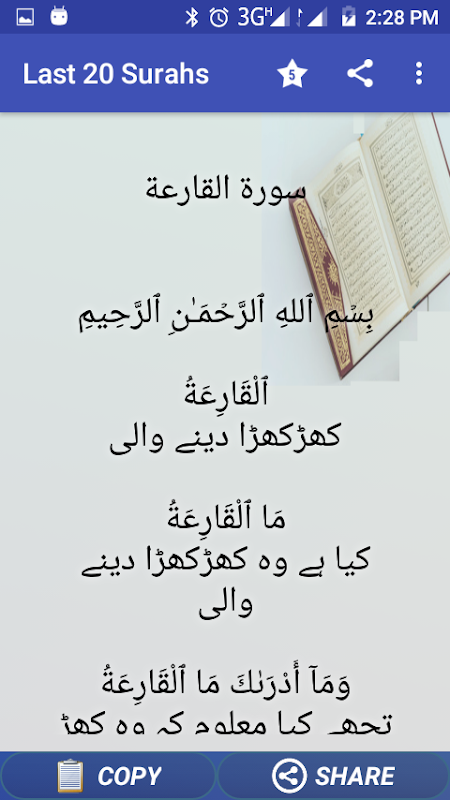 3G H 2:28 PM
Last 20 Surahs 5
سورة القارعة
بِسۡمِ ٱللهِ ٱلرَّحۡمَـٰنِ ٱلرَّحِيمِ
ٱلۡقَارِعَةُ
کھڑکھڑا دینے والی
مَا ٱلۡقَارِعَةُ
کیا ہے وہ کھڑکھڑا دینے
والی
وَمَآ أَدۡرَىٰكَ مَا ٱلۡقَارِعَةُ
تجھے کیا معلوم کہ وہ کھڑ
COPY SHARE